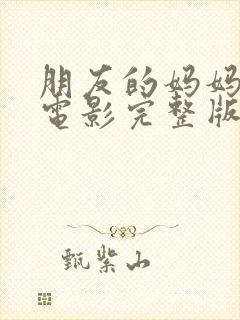 朋友的妈妈
电影完整版
甄紫山